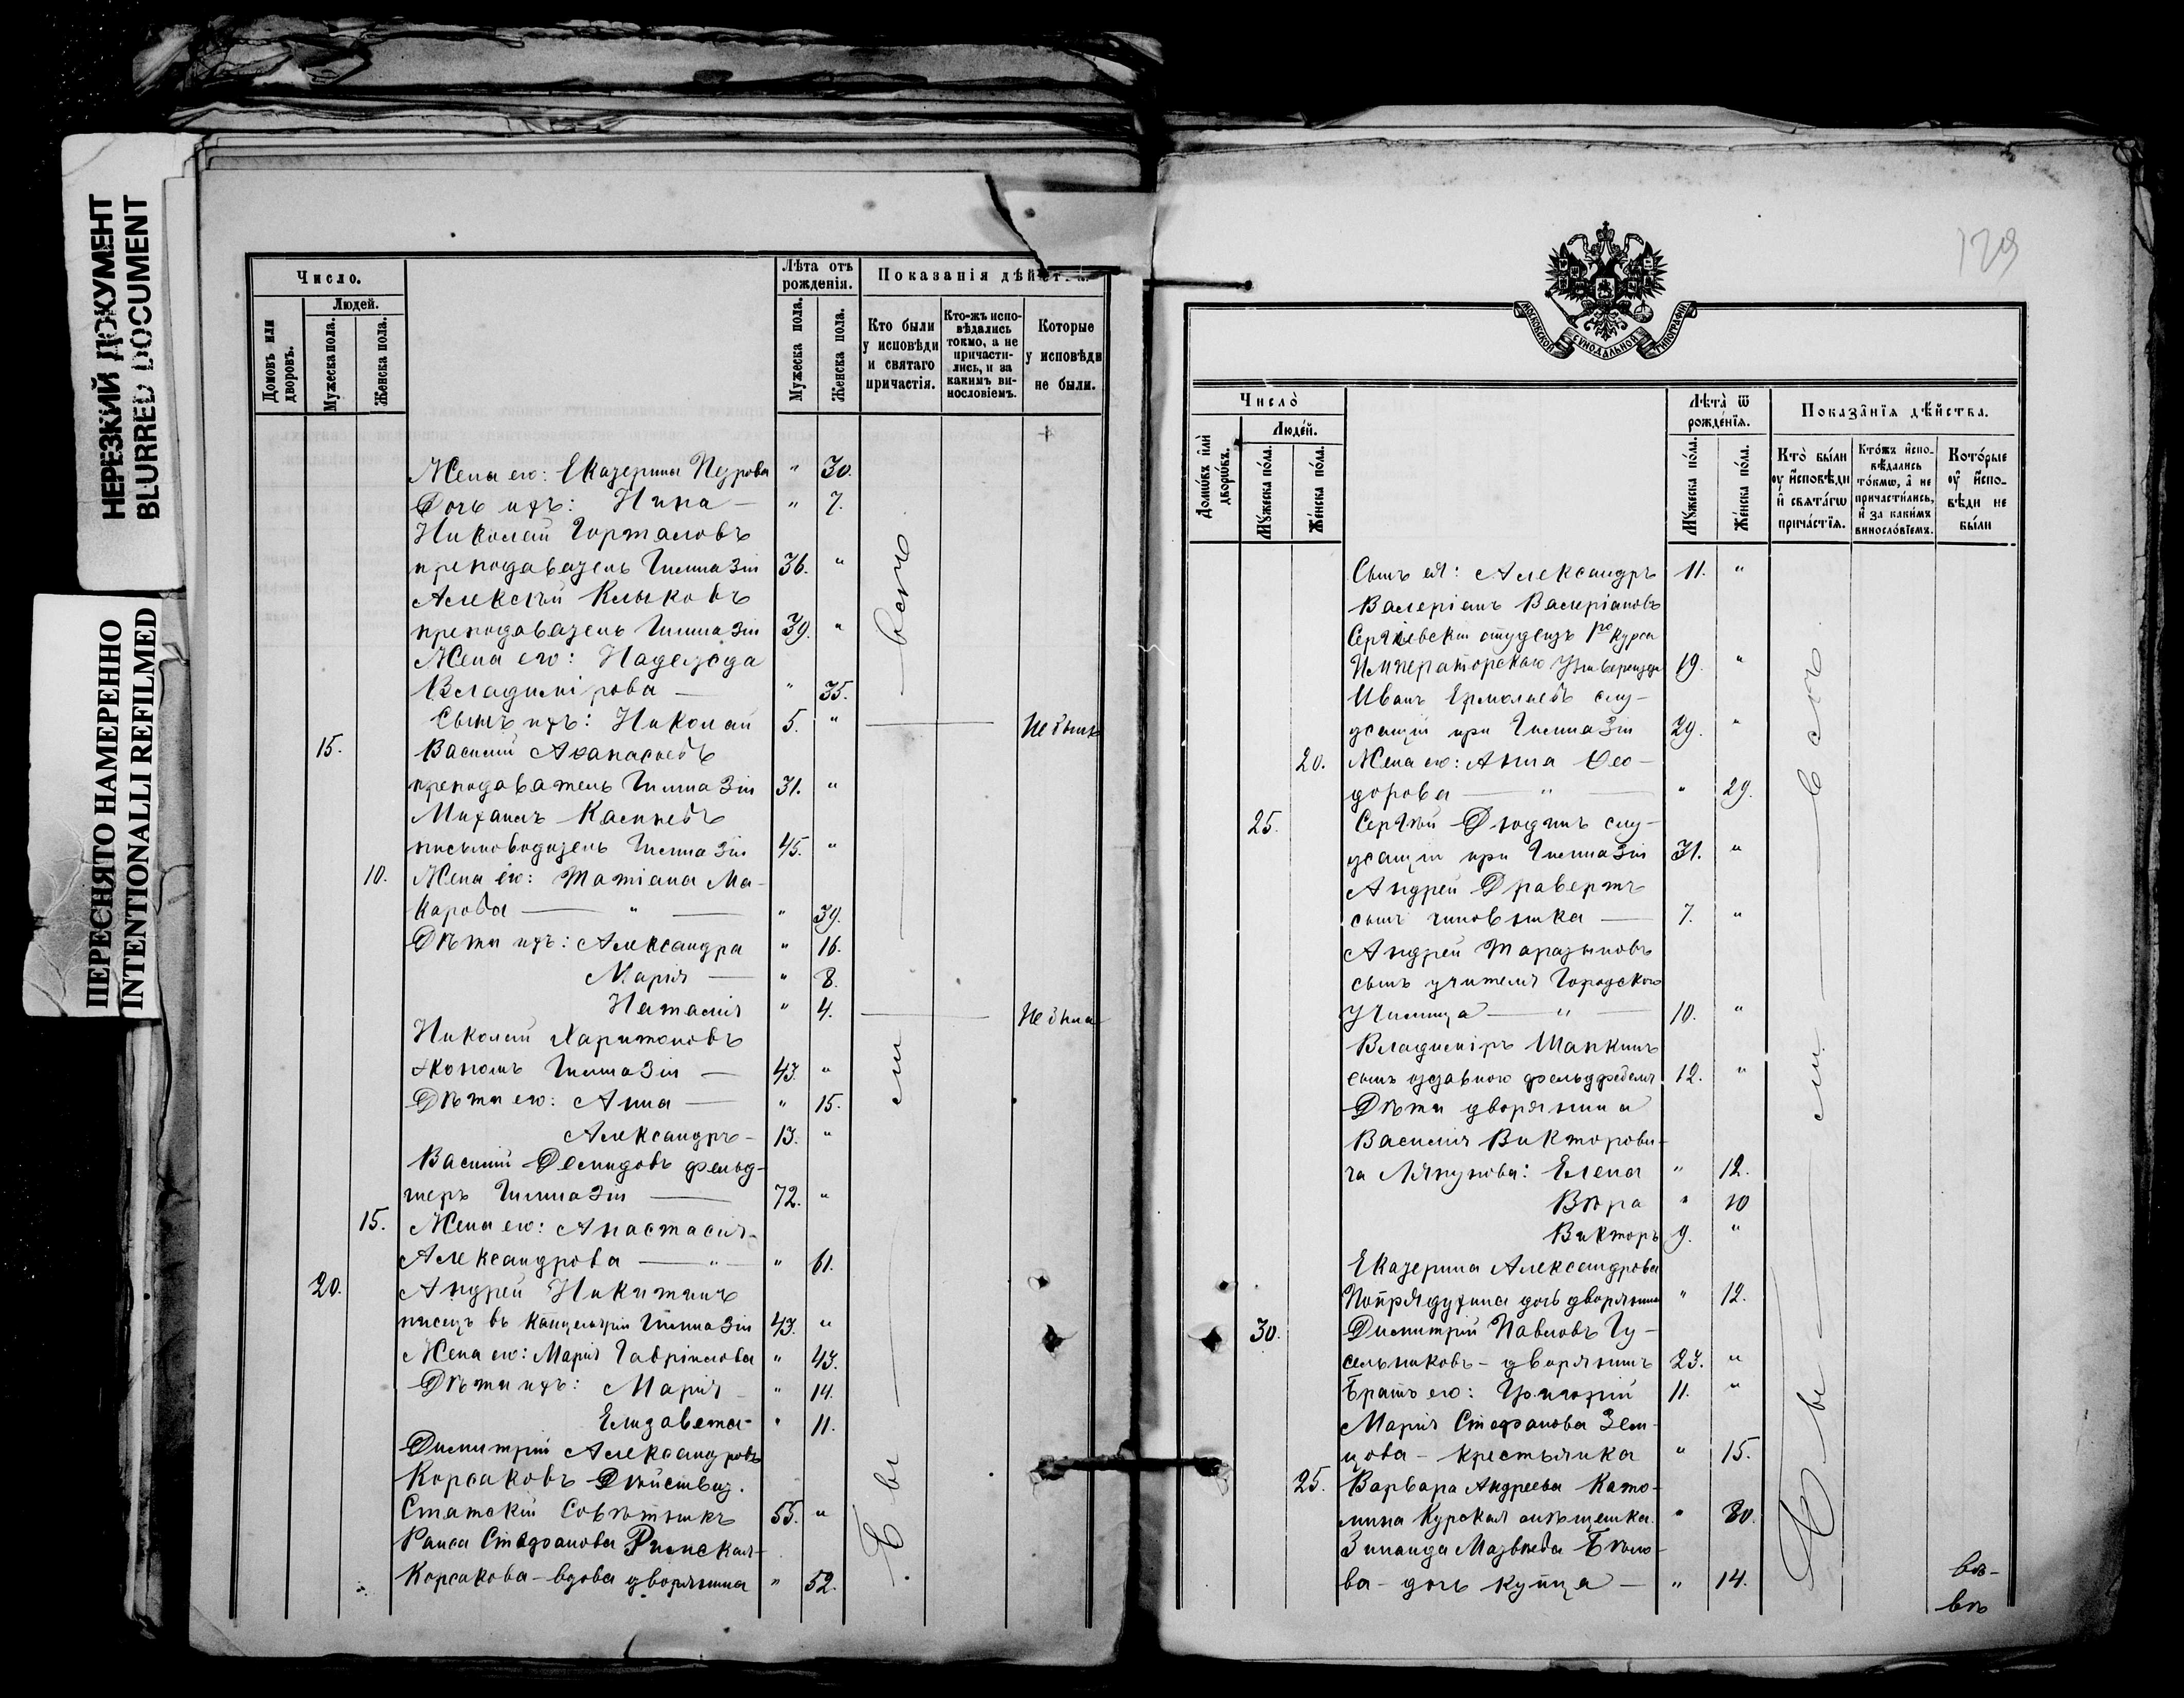 НЕРЕЗКИЙ ДОКУМЕНТ
BLURRED DOCUMENT
ПЕРЕСНЯТО НАМЕРЕННО
INTENTIONALLI REFILMED
Число.
Людей.
Домовъ или дворовъ.
Мужеска пола.
Женска пола.
Лѣта отъ рожденія.
Мужеска пола.
Женска пола.
Показанія дѣйст
Кто были у исповѣди и святаго причастія.
Кто-жъ исповѣдались токмо, а не причастились, и за какимъ винословіемъ.
Которые у исповѣди не были.
Жена его: Екатерина Петрова " 30.
Дочь ихъ: Нина — " 7.
Николай Горталовъ
преподаватель Гимназіи 36. "
Алексѣй Клыковъ
преподаватель Гимназіи 39. "
Жена его: Надежда
Владимірова — " 35.
Сынъ ихъ: Николай 5. " Не былъ
15. Василій Аѳанасьевъ
преподаватель Гимназіи 31. "
Михаилъ Каллиевъ
письмоводитель Гимназіи 45. "
10. Жена его: Татіана Ма-
карова — " — " 39.
Дѣти ихъ: Александра " 16.
Марія — " 8.
Наталія " 4. Не была
Николай Харитоновъ
экономъ Гимназіи — 43. "
Дѣти его: Анна — " 15.
Александръ — 13. "
Василій Демидовъ фельд-
шеръ Гимназіи — 72. "
15. Жена его: Анастасія
Александрова — " — " 61.
20. Андрей Никитинъ
писецъ въ канцеляріи Гимназіи 43. "
Жена его: Марія Гавріилова " 43.
Дѣти ихъ: Марія — " 14.
Елизавета — " 11.
Димитрій Александровъ
Корсаковъ Дѣйствит.
Статскій Совѣтникъ 55. "
Раиса Стефанова Римская-
Корсакова — вдова дворянина " 52.
129
МОСКОВСКОЙ СУНОДАЛЬНОЙ ТИПОГРАФІИ
Число̀
Люде́й.
Домѡ́въ и҆лѝ дворѡ́въ.
Му́жеска по́ла.
Же́нска по́ла.
Лѣ́та ѿ рожде́нїѧ.
Му́жеска по́ла.
Же́нска по́ла.
Показа̑нїѧ дѣ́йства.
Кто̀ бы́ли оу҆ и҆сповѣ́ди и҆ свѧта́гѡ прича́стїѧ.
Кто́жъ и҆сповѣ́дались то́кмѡ, а҆ не причасти́лись, и҆ за каки́мъ виносло́вїемъ.
Кото́рые оу҆ и҆сповѣ́ди не бы́ли
Сынъ ея: Александръ 11. "
Валеріанъ Валеріановъ
Сергіевскій студентъ 1го курса
Императорскаго Университета 19. "
Иванъ Ермолаевъ слу-
жащій при Гимназіи 29. "
20. Жена его: Анна Ѳео-
дорова — " — " 29.
25. Сергѣй Дюдинъ слу-
жащій при Гимназіи 31. "
Андрей Дравертъ
сынъ чиновника — 7. "
Андрей Таразановъ
сынъ учителя Городского
Училища — " — 10. "
Владиміръ Шапкинъ
сынъ отставного фельдфебеля 12. "
Дѣти дворянина
Василія Викторови-
ча Ляпунова: Елена " 12.
Вѣра " 10
Викторъ 9. "
Екатерина Александрова
дочь дворянина " 12.
30. Димитрій Павловъ Гу-
сельниковъ — дворянинъ 23. "
Братъ его: Григорій 11. "
Марія Стефанова Зем-
цова — крестьянка " 15.
25. Варвара Андреева Като-
лина Курская мѣщанка " 80.
Зинаида Матвѣева Бѣло-
ва — дочь купца — " 14.